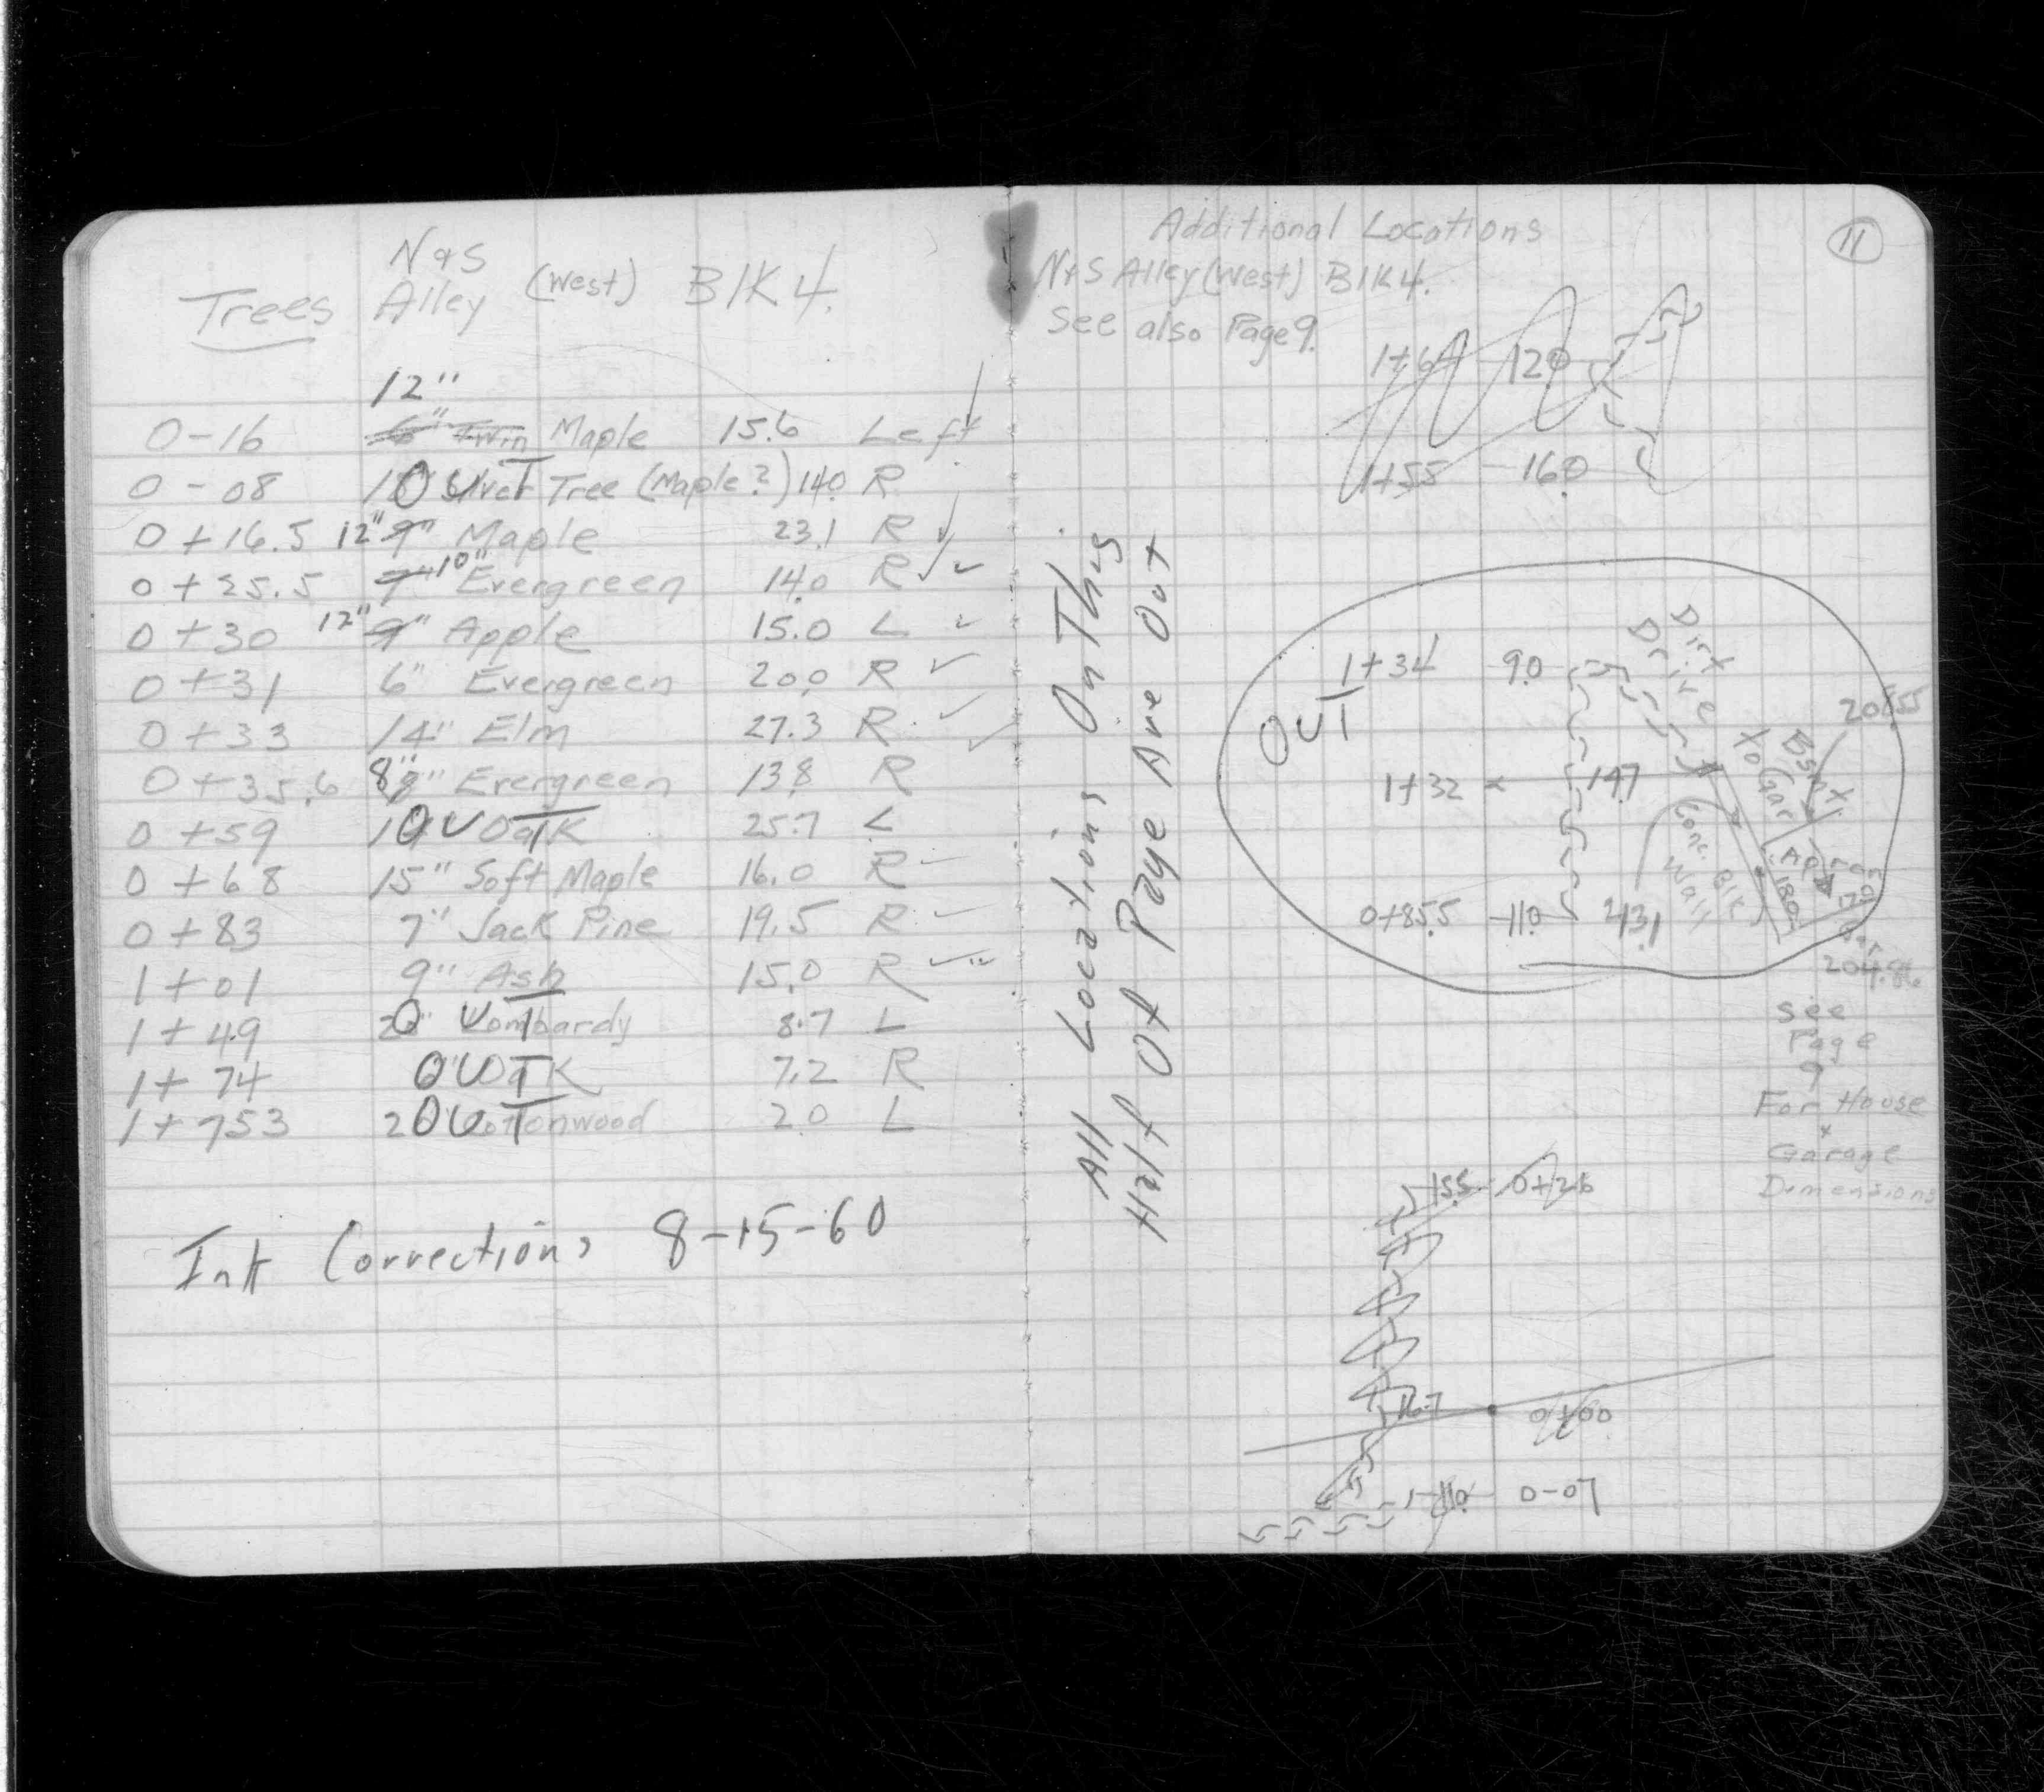 Trees N & S Alley (West) Blk 4.
12"
0-16 6" Twin Maple 15.6 Left
0-08 OUT Silver Tree (Maple?) 14.0 R
0+16.5 12" 9" Maple 23.1 R
0+25.5 7" 10" Evergreen 14.0 R
0+30 12" 9" Apple 15.0 L
0+31 6" Evergreen 20.0 R
0+33 14" Elm 27.3 R
0+35.6 8" Evergreen 13.8 R
0+59 OUT Oak 25.7 L
0+68 15" Soft Maple 16.0 R
0+83 7" Jack Pine 19.5 R
1+01 9" Ash 15.0 R
1+49 OUT Lombardy 8.7 L
1+74 OUT Oak 7.2 R
1+753 OUT Cottonwood 2.0 L
Ink Corrections 8-15-60
11
Additional Locations
N+S Alley (West) Blk 4.
See also Page 9.
1+55 160
All Locations On This
Half Of Page Are Out
OUT
1+34 9.0
Dirt
Drive
1+32 14.7
Conc. Blk
Wall
0+85.5 11.0
Bsmt.
Gar
204.86
See
Page
9
For House
+
Garage
Dimensions
15.5 0+26
16.7 0+00
11.0 0-07